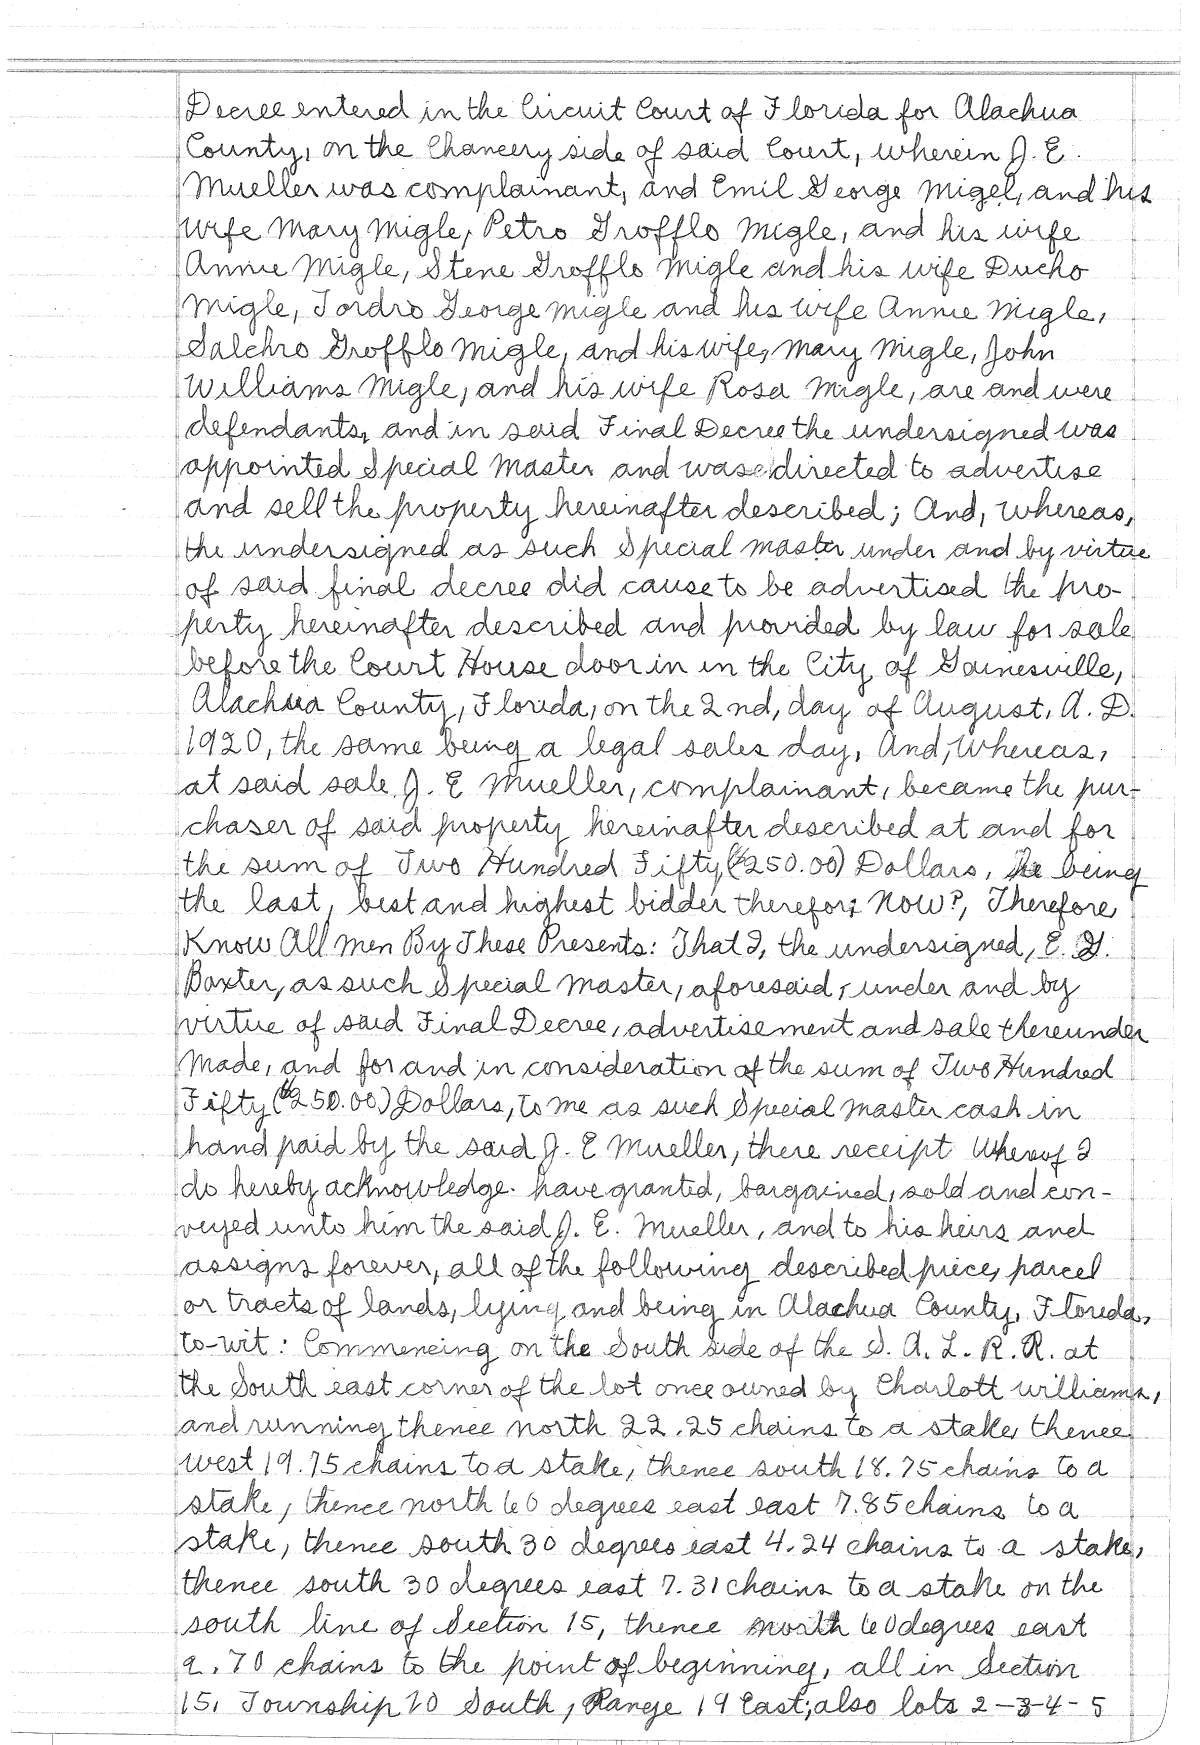 Decree entered in the Circuit Court of Florida for Alachua
County, on the Chancery side of said Court, wherein J. E.
Mueller was complainant, and Emil George Migel, and his
wife Mary Migle, Petro Grofflo Migle, and his wife
Annie Migle, Stene Grofflo Migle and his wife Ducho
Migle, Tordro George Migle and his wife Annie Migle,
Salchro Grofflo Migle, and his wife, Mary Migle, John
Williams Migle, and his wife Rosa Migle, are and were
defendants, and in said Final Decree the undersigned was
appointed Special Master and was directed to advertise
and sell the property hereinafter described; And, Whereas,
the undersigned as such Special Master under and by virtue
of said final decree did cause to be advertised the pro-
perty hereinafter described and provided by law for sale
before the Court House door in in the City of Gainesville,
Alachua County, Florida, on the 2nd, day of August, A. D.
1920, the same being a legal sales day, And, Whereas,
at said sale J. E Mueller, complainant, became the pur-
chaser of said property hereinafter described at and for
the sum of Two Hundred Fifty ($250.00) Dollars, He being
the last, best and highest bidder therefor; Now?, Therefore
Know All Men By These Presents: That I, the undersigned, E. G.
Baxter, as such Special Master, aforesaid, under and by
virtue of said Final Decree, advertisement and sale thereunder
Made, and for and in consideration of the sum of Two Hundred
Fifty ($250.00) Dollars, to me as such Special Master cash in
hand paid by the said J. E Mueller, there receipt Whereof I
do hereby acknowledge. have granted, bargained, sold and con-
veyed unto him the said J. E. Mueller, and to his heirs and
assigns forever, all of the following described piece, parcel
or tracts of lands, lying and being in Alachua County, Florida,
to-wit: Commencing on the South side of the S. A. L. R. R. at
the South east corner of the lot once owned by Charlott Williams,
and running thence north 22.25 chains to a stake, thence
west 19.75 chains to a stake, thence south 18.75 chains to a
stake, thence north 60 degrees east east 7.85 chains to a
stake, thence south 30 degrees east 4.24 chains to a stake,
thence south 30 degrees east 7.31 chains to a stake on the
south line of Section 15, thence north 60 degrees east
9.70 chains to the point of beginning, all in Section
15, Township 10 South, Range 19 East; also lots 2-3-4-5